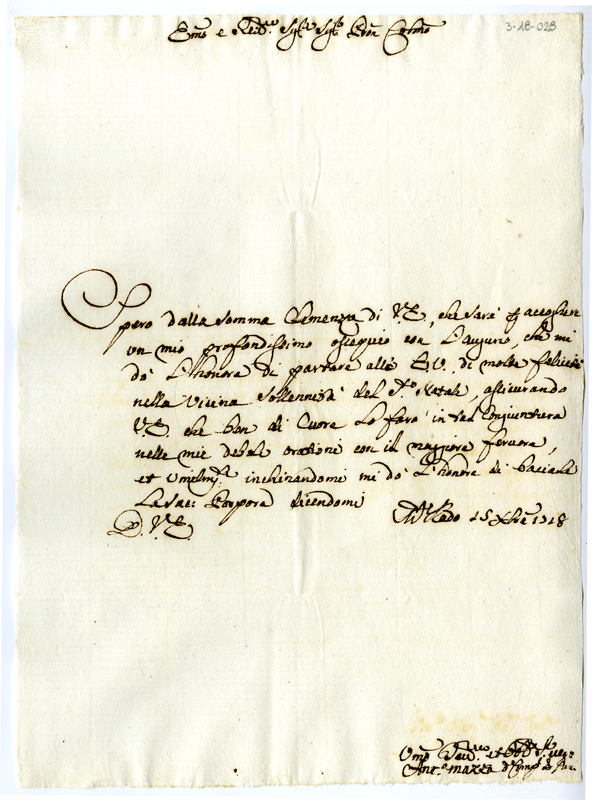 3-18-028
Em̃o e Rev.mo Sig.re Sig.re Pron Col̃mo
Spero dalla somma Clemenza di V.E., che sarà p accogliere
un mio profondissimo ossequio con l'augurio, che mi
dò l'honore di portare alla E.V. di molte felicità
nella vicina sollennità del S.to Natale, assicurando
V.E. che ben di Cuore lo farò in tal Congiuntura
nelle mie deboli orationi con il maggiore fervore,
et Umilm.te inchinandomi mi dò l'honore di baciarle
la Sac: Porpora dicendomi
D. V.E. 15 Xbre 1718
Um̃o Dev.mo et Obb.mo
Ant.o Mazza